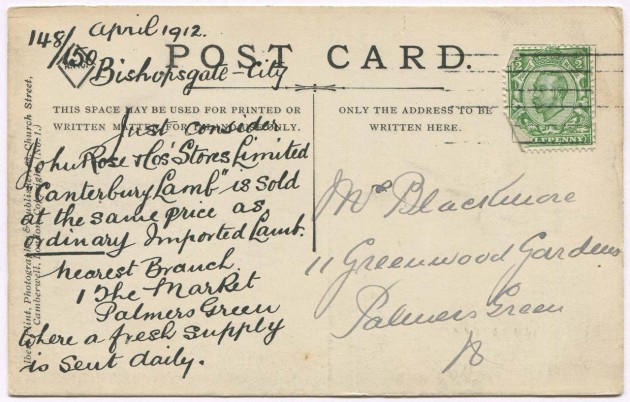 April 1912.
148/150
POST CARD.
Bishopsgate-City
THIS SPACE MAY BE USED FOR PRINTED OR
WRITTEN MATTER FOR INLAND ONLY.
Just consider
John Rose & Cos' Stores Limited
"Canterbury Lamb" is sold
at the same price as
ordinary Imported Lamb.
nearest Branch.
1 The Market
Palmers Green
where a fresh supply
is sent daily.
ONLY THE ADDRESS TO BE
WRITTEN HERE.
Mrs Blackmore
11 Greenwood Gardens
Palmers Green
Flint, Photographer & Publisher, Church Street,
Camberwell, London. Copyright.
HALFPENNY